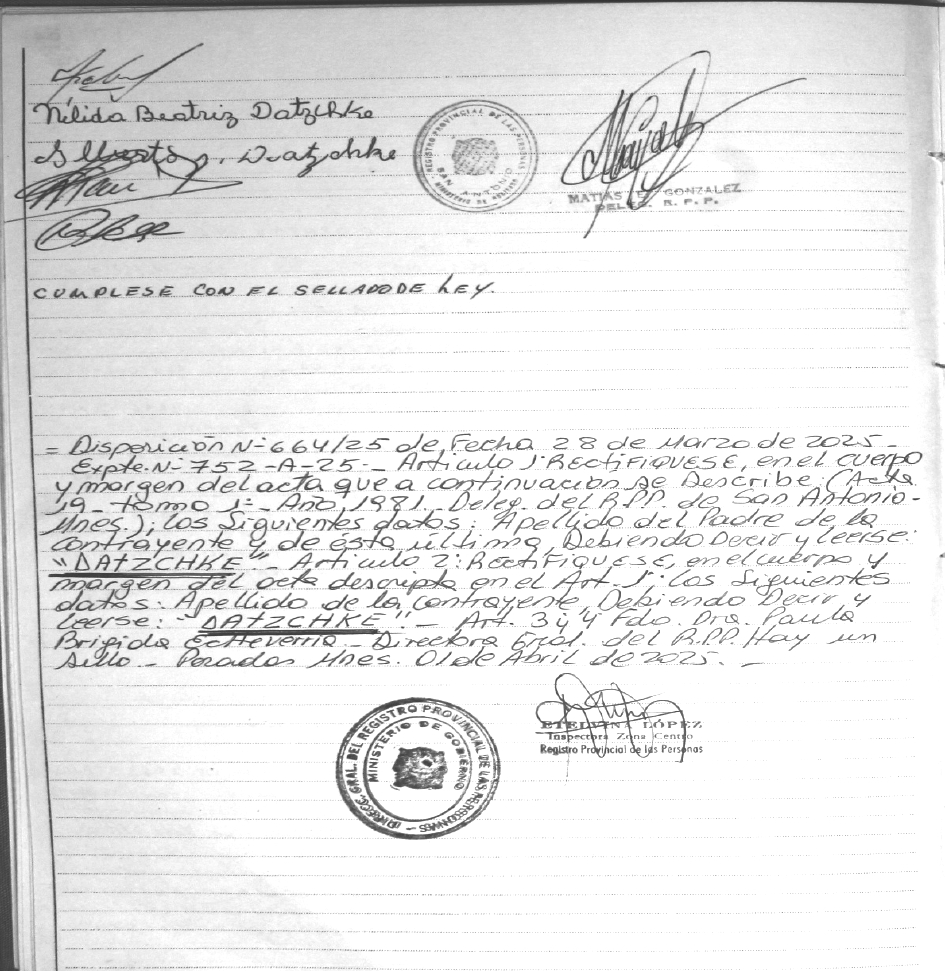 Nélida Beatriz Datzchke
REGISTRO PROVINCIAL DE LAS PERSONAS
SAN ANTONIO
MINISTERIO DE
Alberto Datzchke
MATIAS E. GONZALEZ
DELEG. R. P. P.
CUMPLESE CON EL SELLADO DE LEY.
= Disposición Nº 664/25 de Fecha 28 de Marzo de 2025 _
Expte. Nº 752 - A - 25 _ Artículo 1: RECTIFIQUESE, en el cuerpo
y margen del acta que a continuación se Describe: (Acta
19 _ Tomo 1º _ Año 1981 _ Deleg. del R.P.P. de San Antonio -
Mnes.); los Siguientes datos: Apellido del Padre de la
contrayente y de ésta última, Debiendo Decir y leerse:
"DATZCHKE" _ Artículo 2: RECTIFIQUESE, en el cuerpo y
margen del acta descripta en el Art. 1: los Siguientes
datos: Apellido de la contrayente, Debiendo Decir y
leerse: "DATZCHKE" _ Art. 3 y 4 Fdo. Dra. Paula
Brigida Echeverria _ Directora Gral. del R.P.P. Hay un
Sello _ Posadas Mnes. 01 de Abril de 2025. _
ETELVINA LÓPEZ
Inspectora Zona Centro
Registro Provincial de las Personas
DIRECC. GRAL. DEL REGISTRO PROVINCIAL DE LAS PERSONAS
MINISTERIO DE GOBIERNO